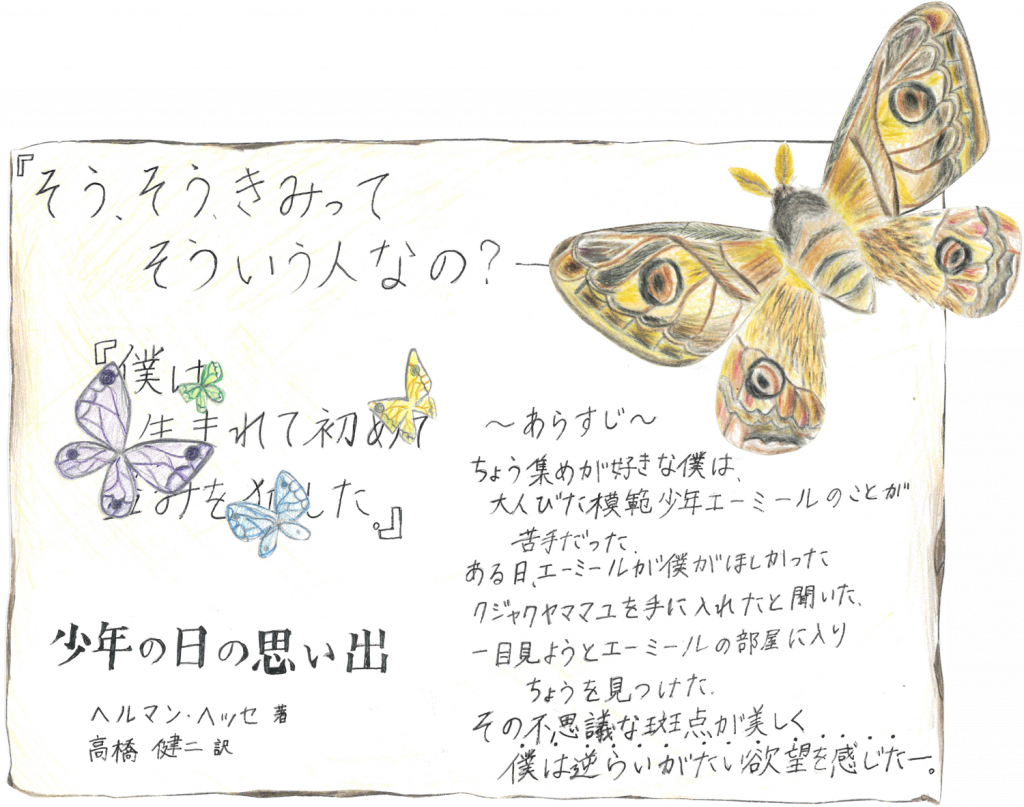 『そう、そう、きみって
そういう人なの?―
『僕は
生まれて初めて
みを した。』
少年の日の思い出
ヘルマン・ヘッセ 著
高橋 健二 訳
～あらすじ～
ちょう集めが好きな僕は、
大人びた模範少年エーミールのことが
苦手だった。
ある日、エーミールが僕がほしかった
クジャクヤママユを手に入れたと聞いた。
一目見ようとエーミールの部屋に入り
ちょうを見つけた。
その不思議な斑点が美しく
僕は逆らいがたい欲望を感じたー。